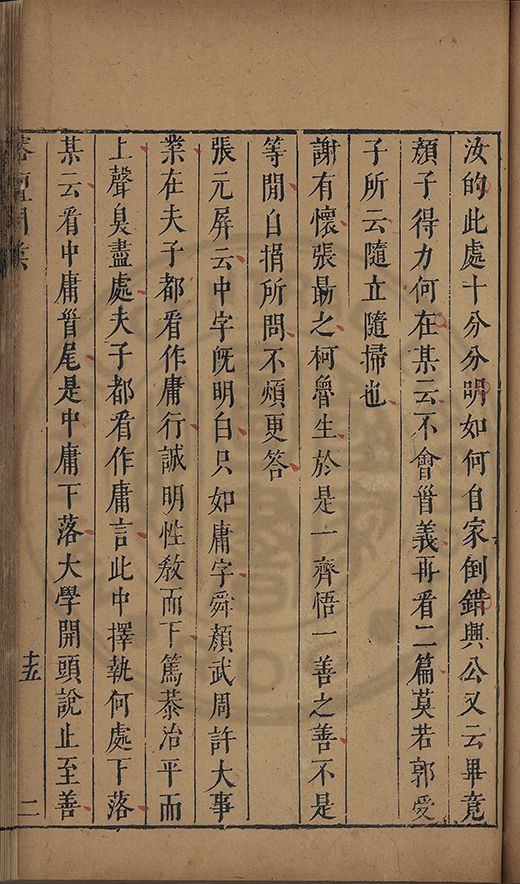 汝的此處十分分明如何自家倒錯興公又云畢竟
顏子得力何在某云不會首義再看二篇莫若郭受
子所云隨立隨掃也
謝有懷張勗之柯魯生於是一齊悟一善之善不是
等閒自捐所問不煩更答
張元屏云中字旣明白只如庸字舜顏武周許大事
業在夫子都看作庸行誠明性敎而下篤恭治平而
上聲臭盡處夫子都看作庸言此中擇執何處下落
某云看中庸首尾是中庸下落大學開頭說止至善
榕壇問業
十五
二